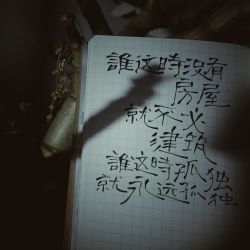 誰这時沒有
房屋
就不必
建筑
誰这時孤独
就永远孤独